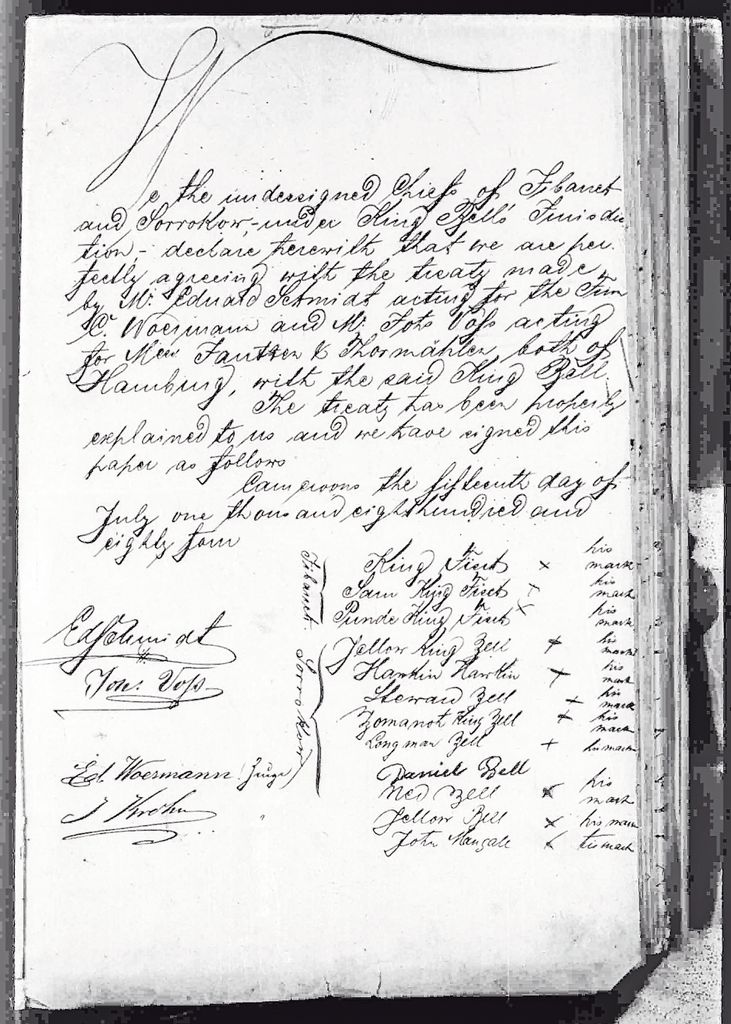 We the undersigned Chiefs of Tibanet
and Sorrokow,-under King Bell's Jurisdic
tion,- declare herewith that we are per
fectly agreeing with the treaty made
by Mr. Eduard Schmidt acting for the Firm
C. Woermann and Mr. Johs Voss acting
for Jantzen & Thormählen both of
Hamburg, with the said King Bell
The treaty has been properly
explained to us and we have signed this
paper as follows
Cameroons the fifteenth day of
July one thousand eighthundred and
eighty four
Tibanet. King Fischt x his mark
Sam King Fischt x his mark
Punde King Fischt x his mark
Ed Schmidt
Johs. Voss
Sorrokow Jellow King Bell x his mark
Hawkin Hawkin x his mark
Steward Bell x his mark
Zomanot King Bell x his mark
Longman Bell x his mark
Ed. Woermann (Zeuge)
J Krohn
Daniel Bell
Ned Bell x his mark
Jellow Bell x his mark
John x his mark